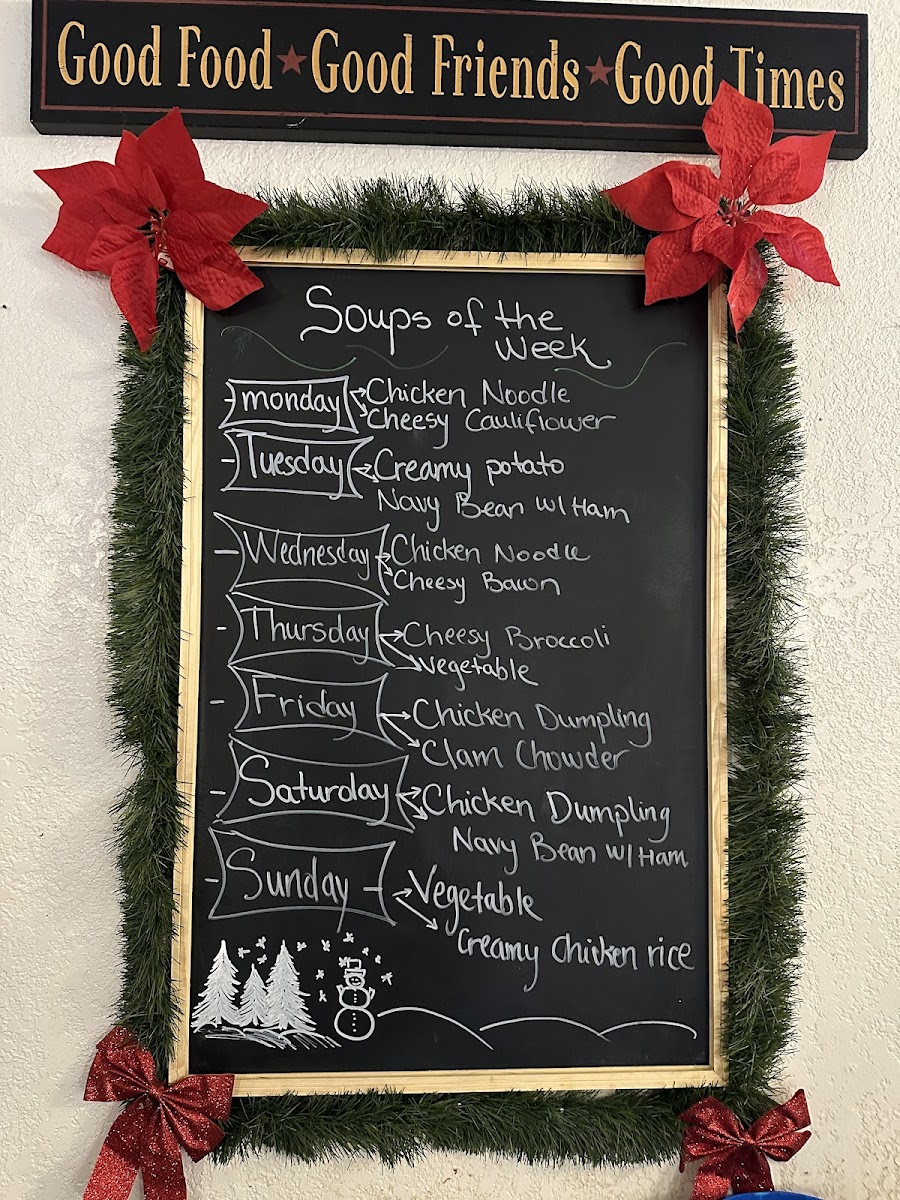 Good Food ★ Good Friends ★ Good Times
Soups of the
Week
- monday → Chicken Noodle
→ Cheesy Cauliflower
- Tuesday → Creamy potato
Navy Bean w/ Ham
- Wednesday → Chicken Noodle
→ Cheesy Bacon
- Thursday → Cheesy Broccoli
→ Vegetable
- Friday → Chicken Dumpling
→ Clam Chowder
- Saturday → Chicken Dumpling
Navy Bean w/ Ham
- Sunday - → Vegetable
→ Creamy Chicken rice